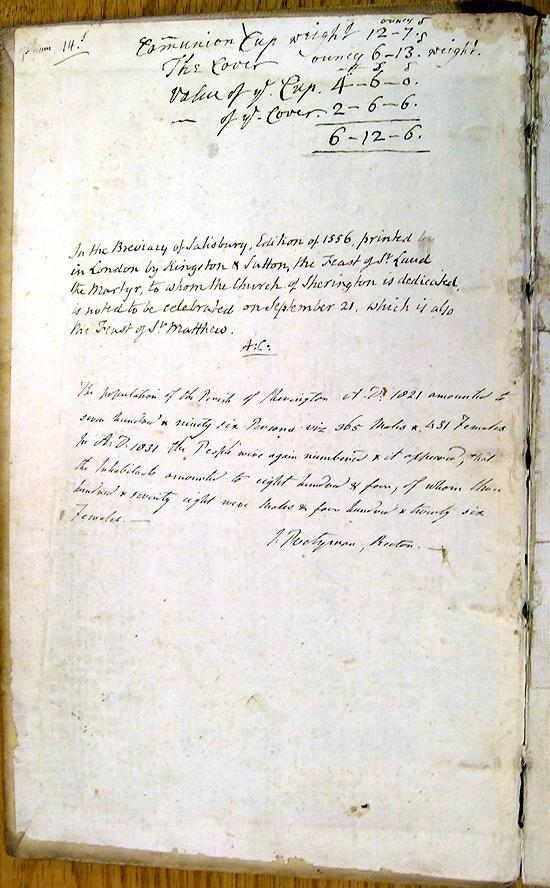 14.s
ounces s
Communion Cup weight 12-7.s
The Cover ounces 6-13. weight.
£ s s
Value of ye. Cup. 4-6-0.
— of ye. Cover. 2-6-6.
6-12-6.
In the Breviary of Salisbury, Edition of 1556, printed
in London by Kingston & Sutton, the Feast of St Laud
the Martyr, to whom the Church of Sherington is dedicated,
is noted to be celebrated on September 21, which is also
the Feast of St Matthew.
A:C:
The population of the Parish of Sherington A.D. 1821 amounted to
seven hundred & ninety six Persons viz 365 Males & 431 Females
In A.D. 1831 the People were again numbered & it appeared, that
the Inhabitants amounted to eight hundred & four, of whom three
hundred & seventy eight were Males & four hundred & twenty six
Females. —
J. Pretyman, Rector. —